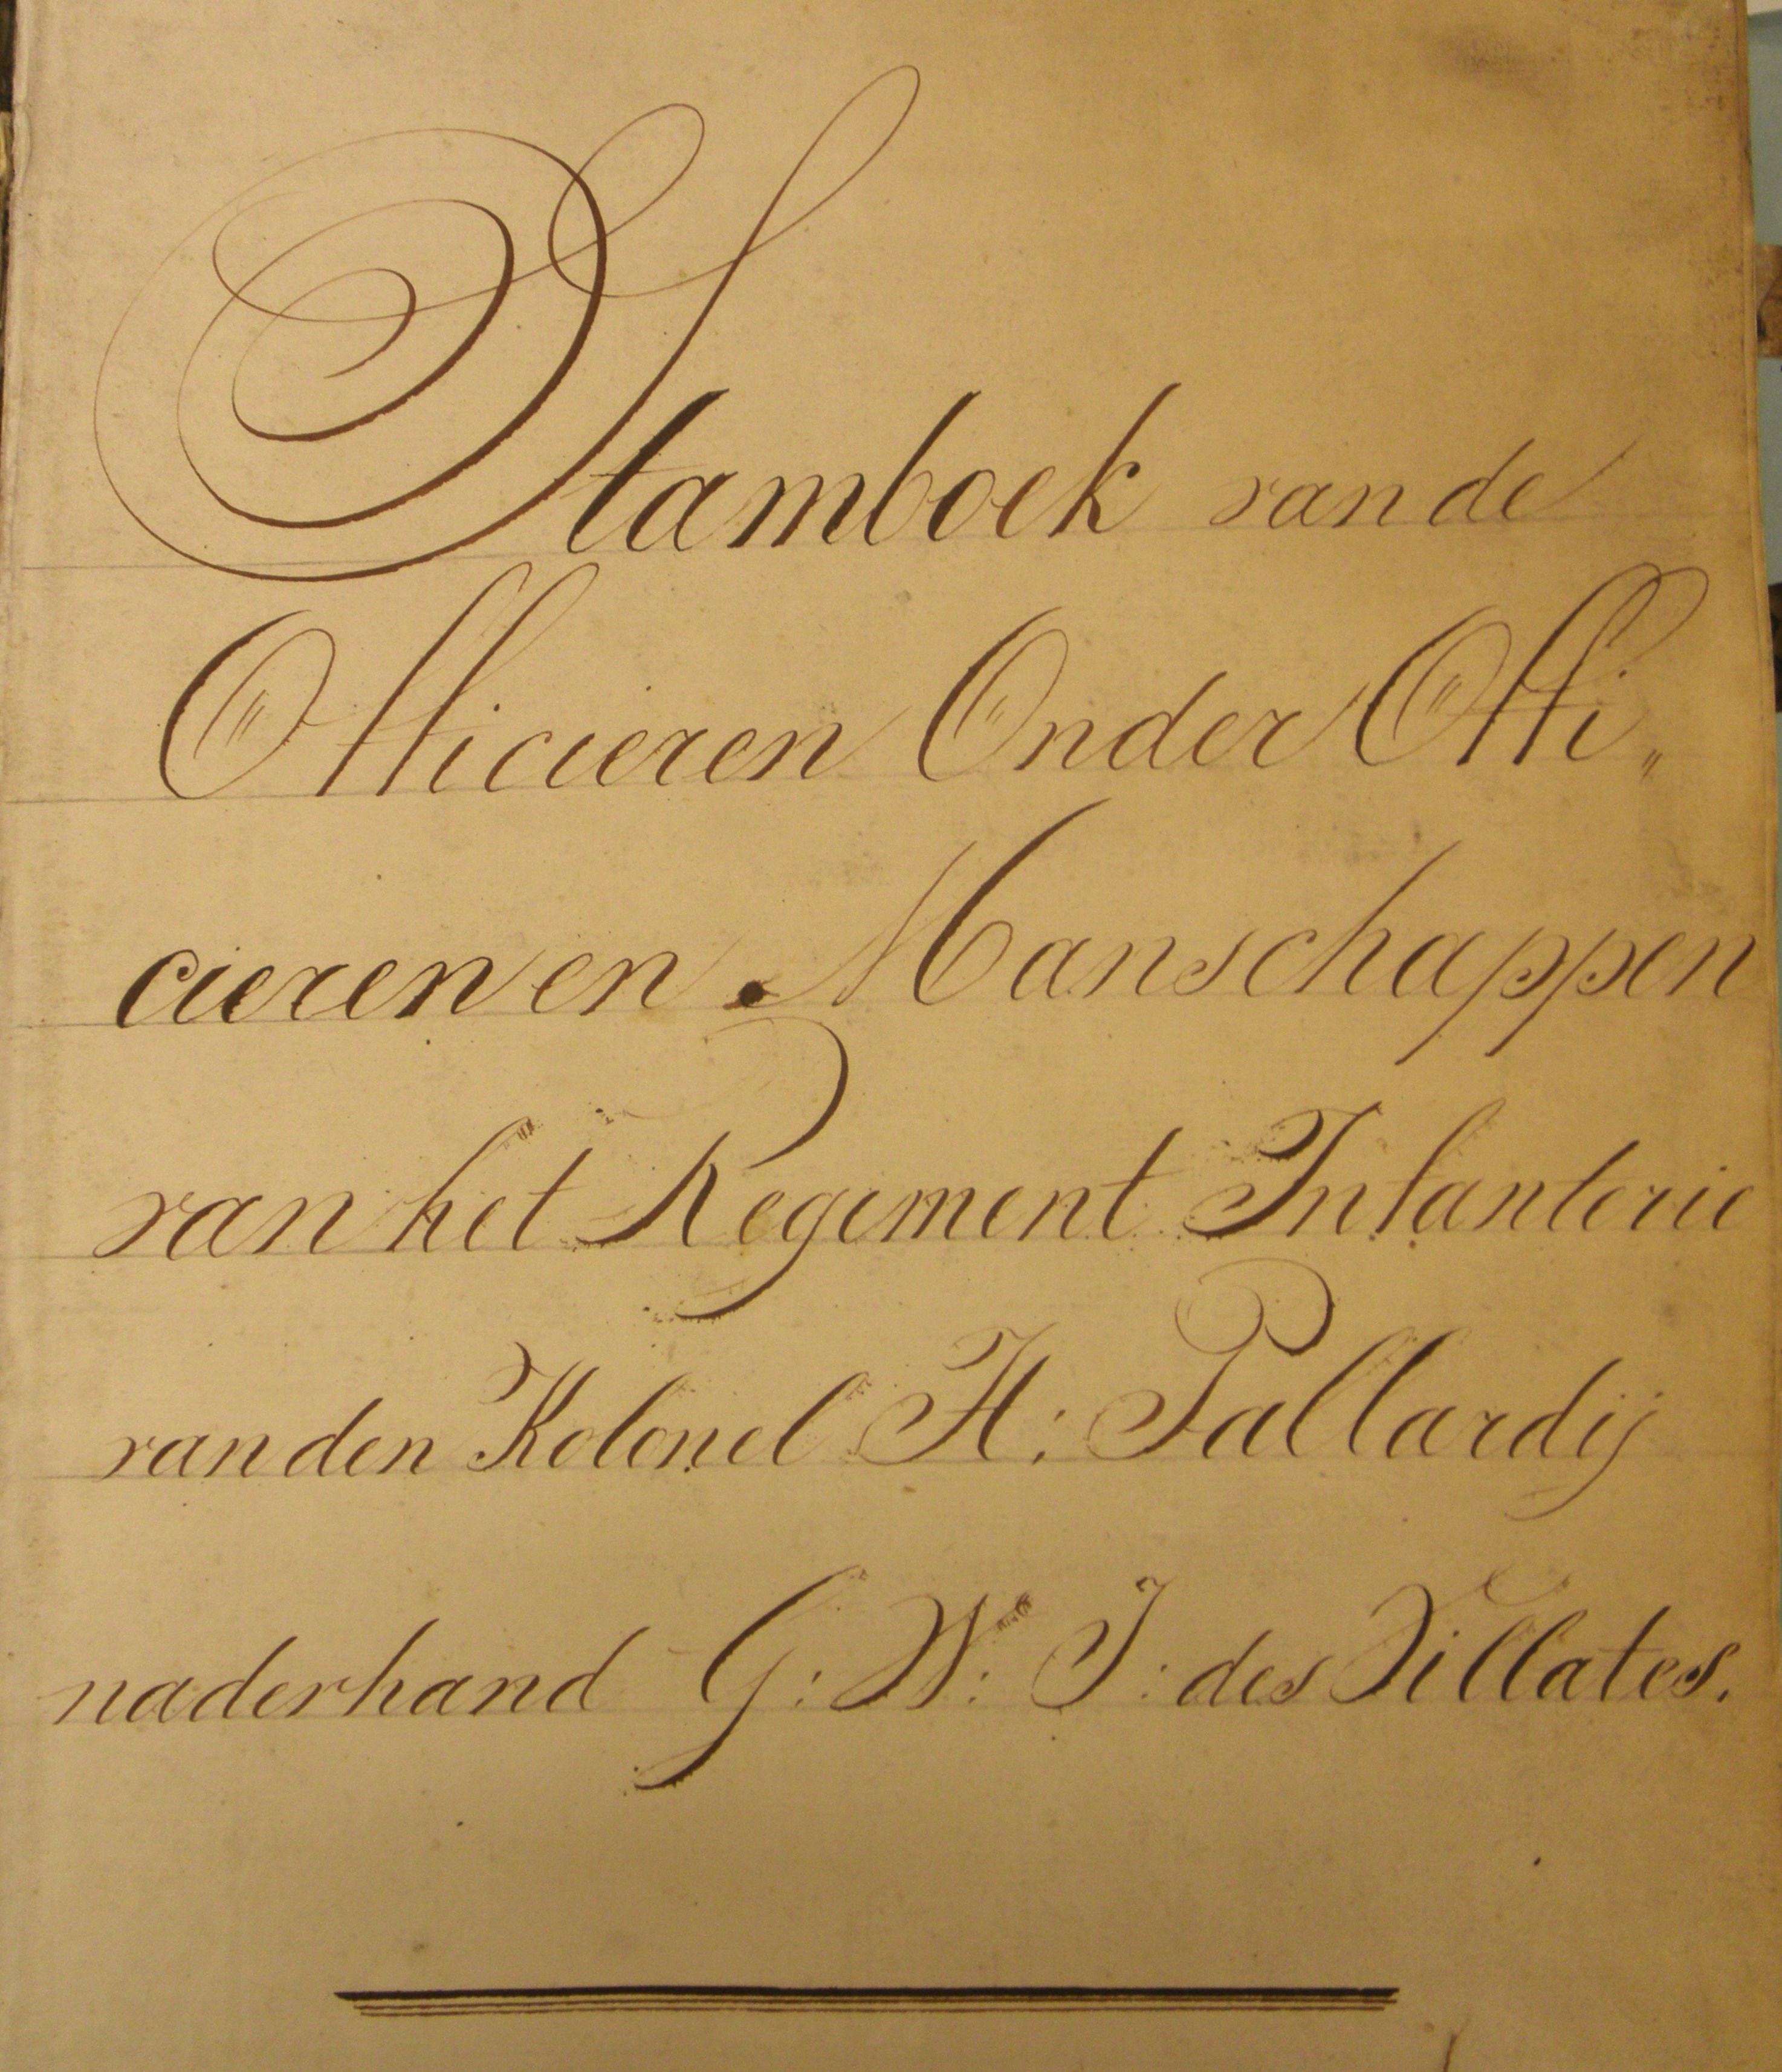 Stamboek van de
Officieren Onder Offi„
cieren en Manschappen
van het Regiment Infanterie
van den Kolonel H: Pallardij
naderhand G: W: J: des Villates.